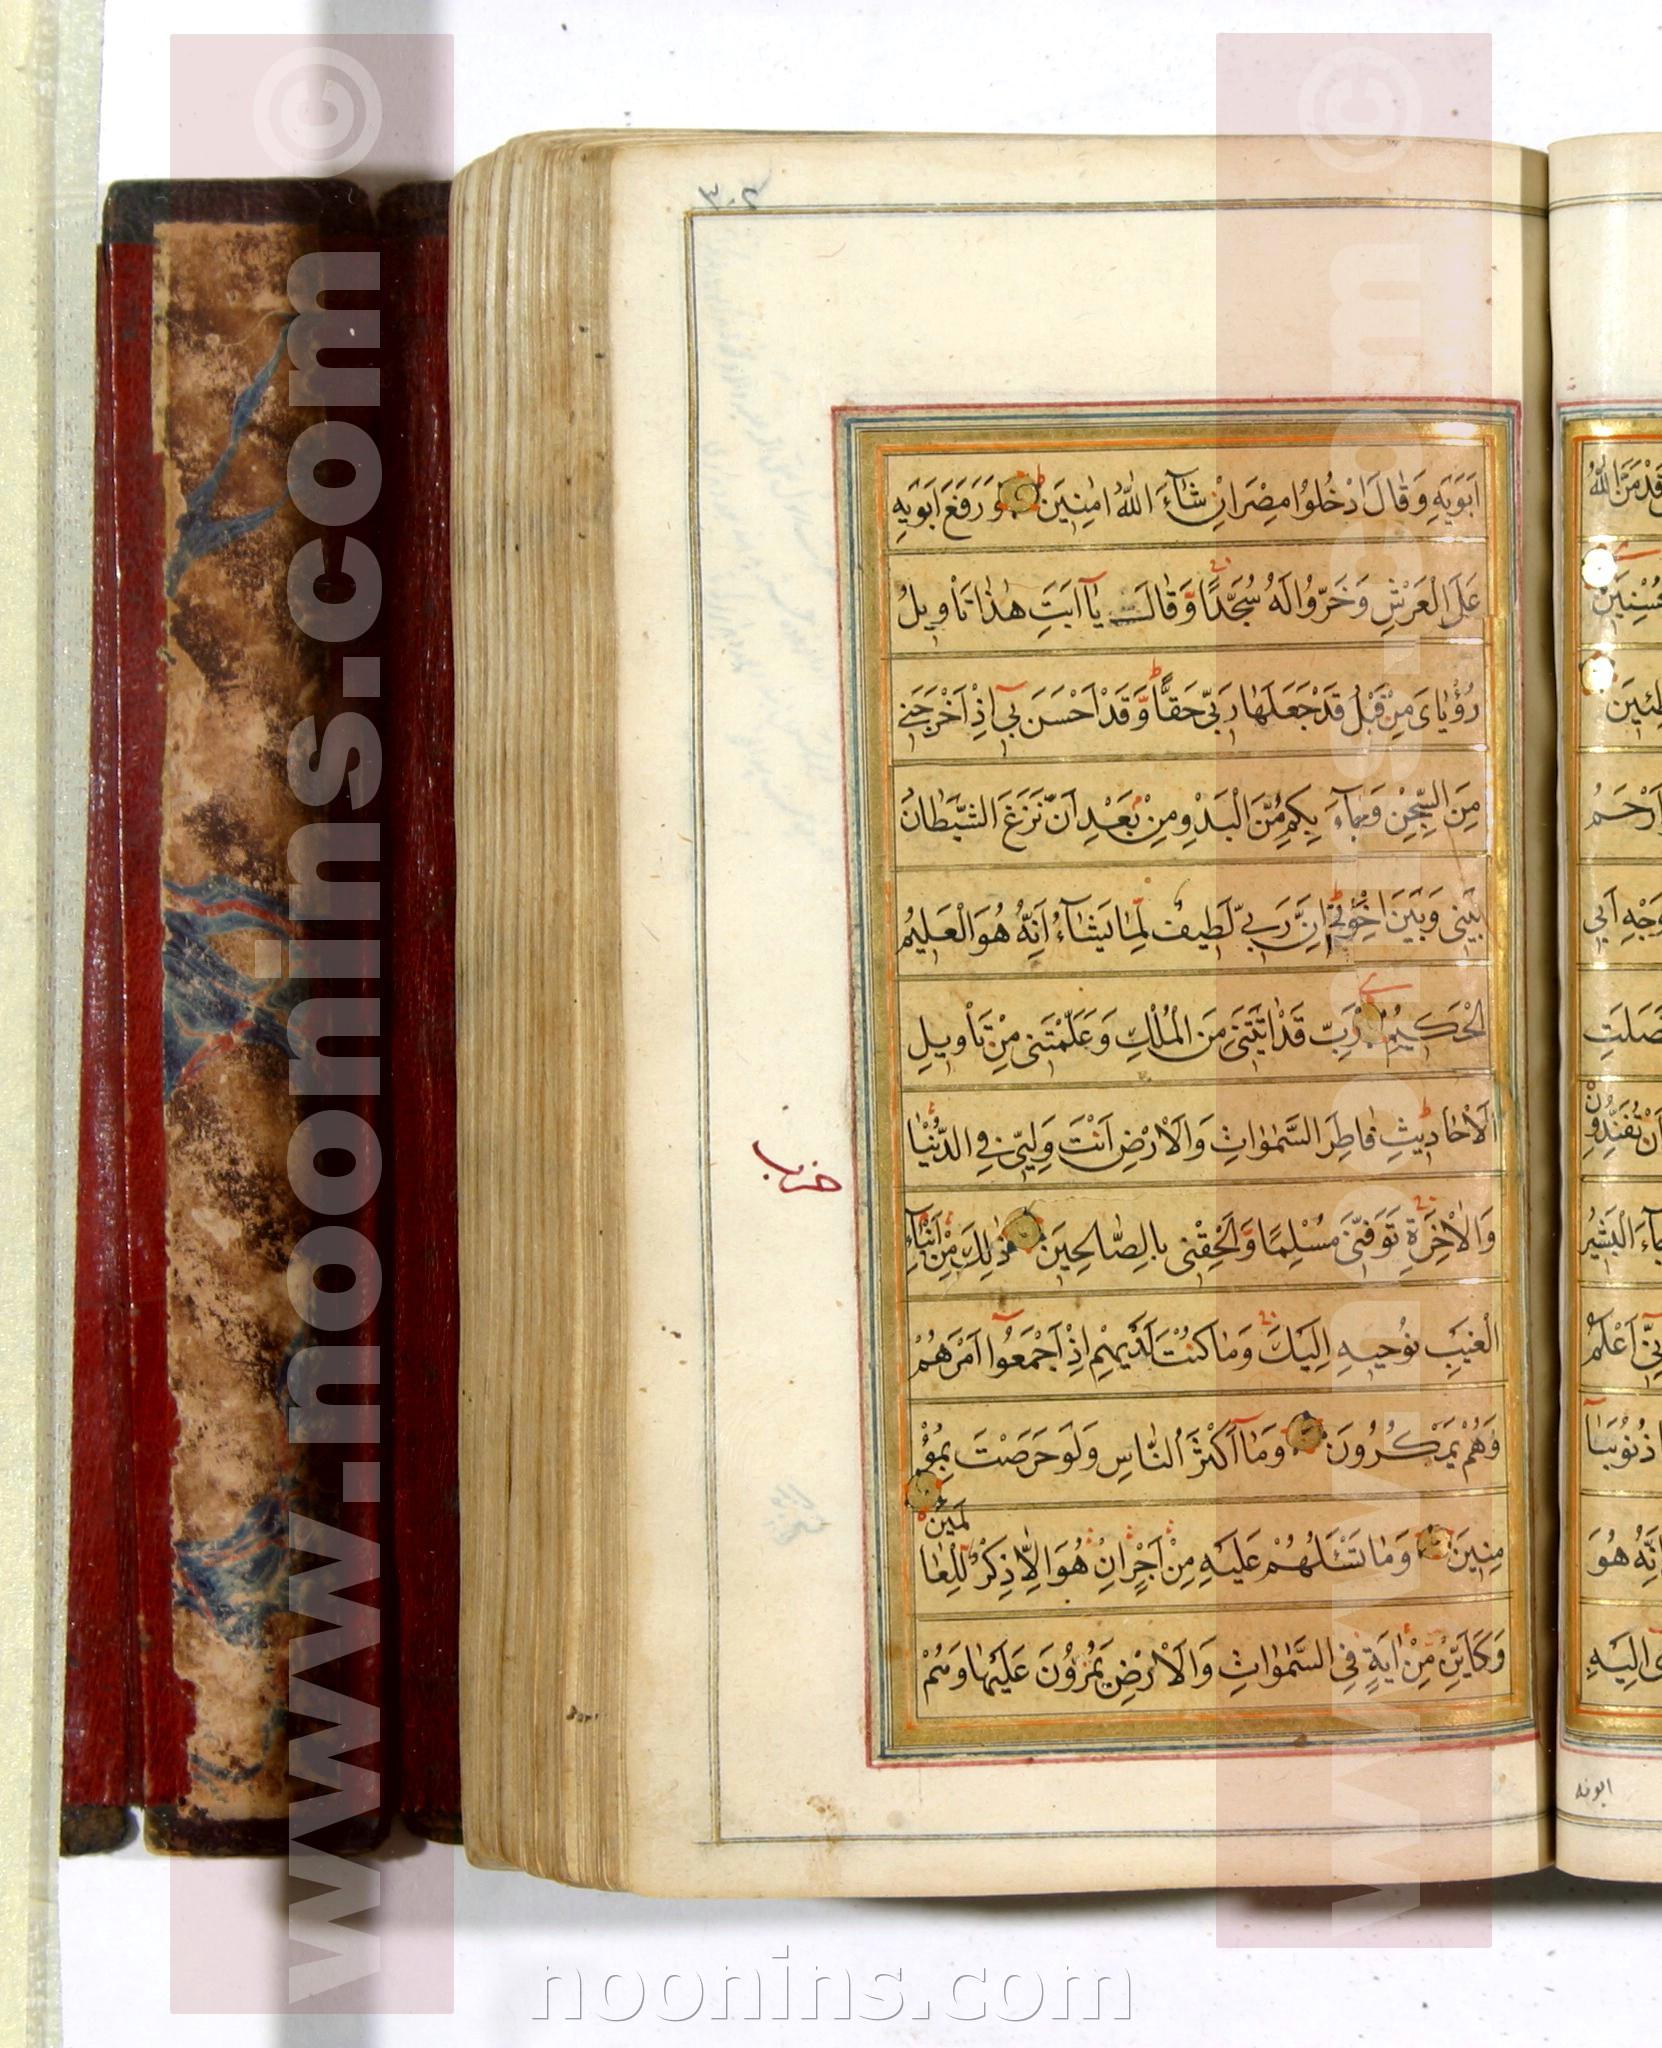 ۳۰۲
اَبَوَيْهِ وَقَالَ ادْخُلُوا مِصْرَ اِنْ شَآءَ اللّٰهُ اٰمِنِينَ وَرَفَعَ اَبَوَيْهِ
عَلَى الْعَرْشِ وَخَرُّوا لَهُ سُجَّدًا وَقَالَ يَآ اَبَتِ هٰذَا تَأْوِيلُ
رُؤْيَاىَ مِنْ قَبْلُ قَدْ جَعَلَهَا رَبِّي حَقًّا وَقَدْ اَحْسَنَ بِي اِذْ اَخْرَجَنِي
مِنَ السِّجْنِ وَجَآءَ بِكُمْ مِنَ الْبَدْوِ مِنْ بَعْدِ اَنْ نَزَغَ الشَّيْطَانُ
بَيْنِي وَبَيْنَ اِخْوَتِي اِنَّ رَبِّي لَطِيفٌ لِمَا يَشَآءُ اِنَّهُ هُوَ الْعَلِيمُ
الْحَكِيمُ رَبِّ قَدْ اٰتَيْتَنِي مِنَ الْمُلْكِ وَعَلَّمْتَنِي مِنْ تَأْوِيلِ
الْاَحَادِيثِ فَاطِرَ السَّمٰوَاتِ وَالْاَرْضِ اَنْتَ وَلِيِّي فِي الدُّنْيَا
وَالْاٰخِرَةِ تَوَفَّنِي مُسْلِمًا وَاَلْحِقْنِي بِالصَّالِحِينَ ذٰلِكَ مِنْ اَنْبَآءِ
الْغَيْبِ نُوحِيهِ اِلَيْكَ وَمَا كُنْتَ لَدَيْهِمْ اِذْ اَجْمَعُوآ اَمْرَهُمْ
وَهُمْ يَمْكُرُونَ وَمَآ اَكْثَرُ النَّاسِ وَلَوْ حَرَصْتَ بِمُؤْ
مِنِينَ وَمَا تَسْـَٔلُهُمْ عَلَيْهِ مِنْ اَجْرٍ اِنْ هُوَ اِلَّا ذِكْرٌ لِلْعَا
لَمِينَ
وَكَاَيِّنْ مِنْ اٰيَةٍ فِي السَّمٰوَاتِ وَالْاَرْضِ يَمُرُّونَ عَلَيْهَا وَهُمْ
حزب
ابويه
www.noonins.com ©
www.noonins.com ©
noonins.com